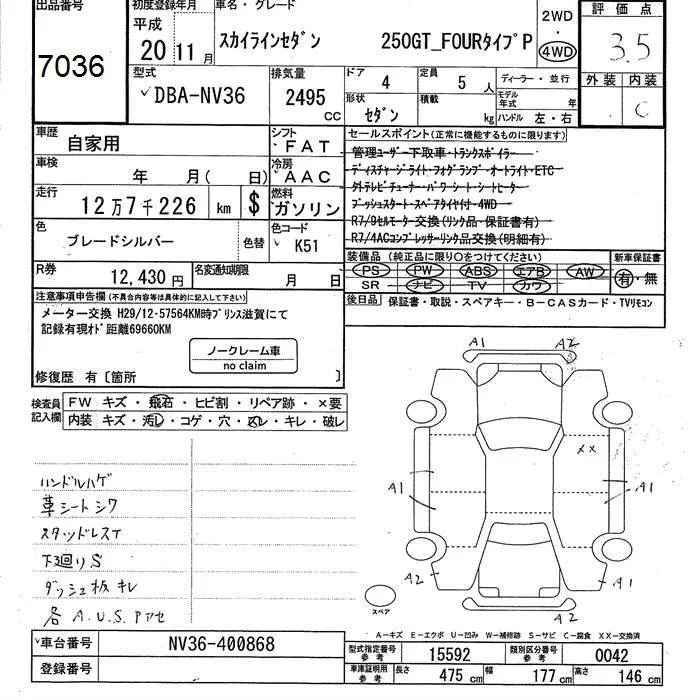 出品番号 初度登録年月 車名・グレード 2WD・4WD 評価点
7036 平成 20年11月 スカイラインセダン 250GT_FOURタイプP 3.5
型式 DBA-NV36 排気量 2495 CC ドア 4 定員 5人 ディーラー・並行 外装 内装 C
形状 セダン 積載 kg モデル年式 年 ハンドル 左・右
車歴 自家用 シフト FAT セールスポイント(正常に機能するものに限ります)
管理ユーザー下取車・トランクスポイラー
車検 年 月( 日) 冷房 AAC ディスチャージライト・フォグランプ・オートライト・ETC
外テレビチューナー・パワーシート・シートヒーター
走行 12万7千226 km $ 燃料 ガソリン プッシュスタート・スペアタイヤ付・4WD
R7/9セルモーター交換(リンク品・保証書有)
色 ブレードシルバー 色替 色コード K51 R7/4ACコンプレッサーリンク品交換(明細有)
装備品(純正品に限り〇をつけてください) 新車保証書
R券 12,430円 名変通知期限 月 日 PS PW ABS エアB AW 有・無
SR ナビ TV カワ
注意事項申告欄(不具合内容等は具体的に記入して下さい) 後日品 保証書・取説・スペアキー・B-CASカード・TVリモコン
メーター交換 H29/12・57564KM時プリンス滋賀にて
記録有現オド距離69660KM
ノークレーム車
no claim
修復歴 有〔箇所 〕
検査員記入欄 FW キズ・飛石・ヒビ割・リペア跡・×要
内装 キズ・汚レ・コゲ・穴・スレ・キレ・破レ
ハンドルハゲ
革シートシワ
スタッドレスT
下廻りS
ダッシュ板キレ
各A.U.S.Pアセ
A1 A2
××
A1 A1
A2 A1
スペア A2
A-キズ E-エクボ U-凹み W-補修跡 S-サビ C-腐食 XX-交換済
車台番号 NV36-400868 型式指定番号 参考 15592 類別区分番号 参考 0042
登録番号 車庫証明用 参考 長さ 475 cm 幅 177 cm 高さ 146 cm